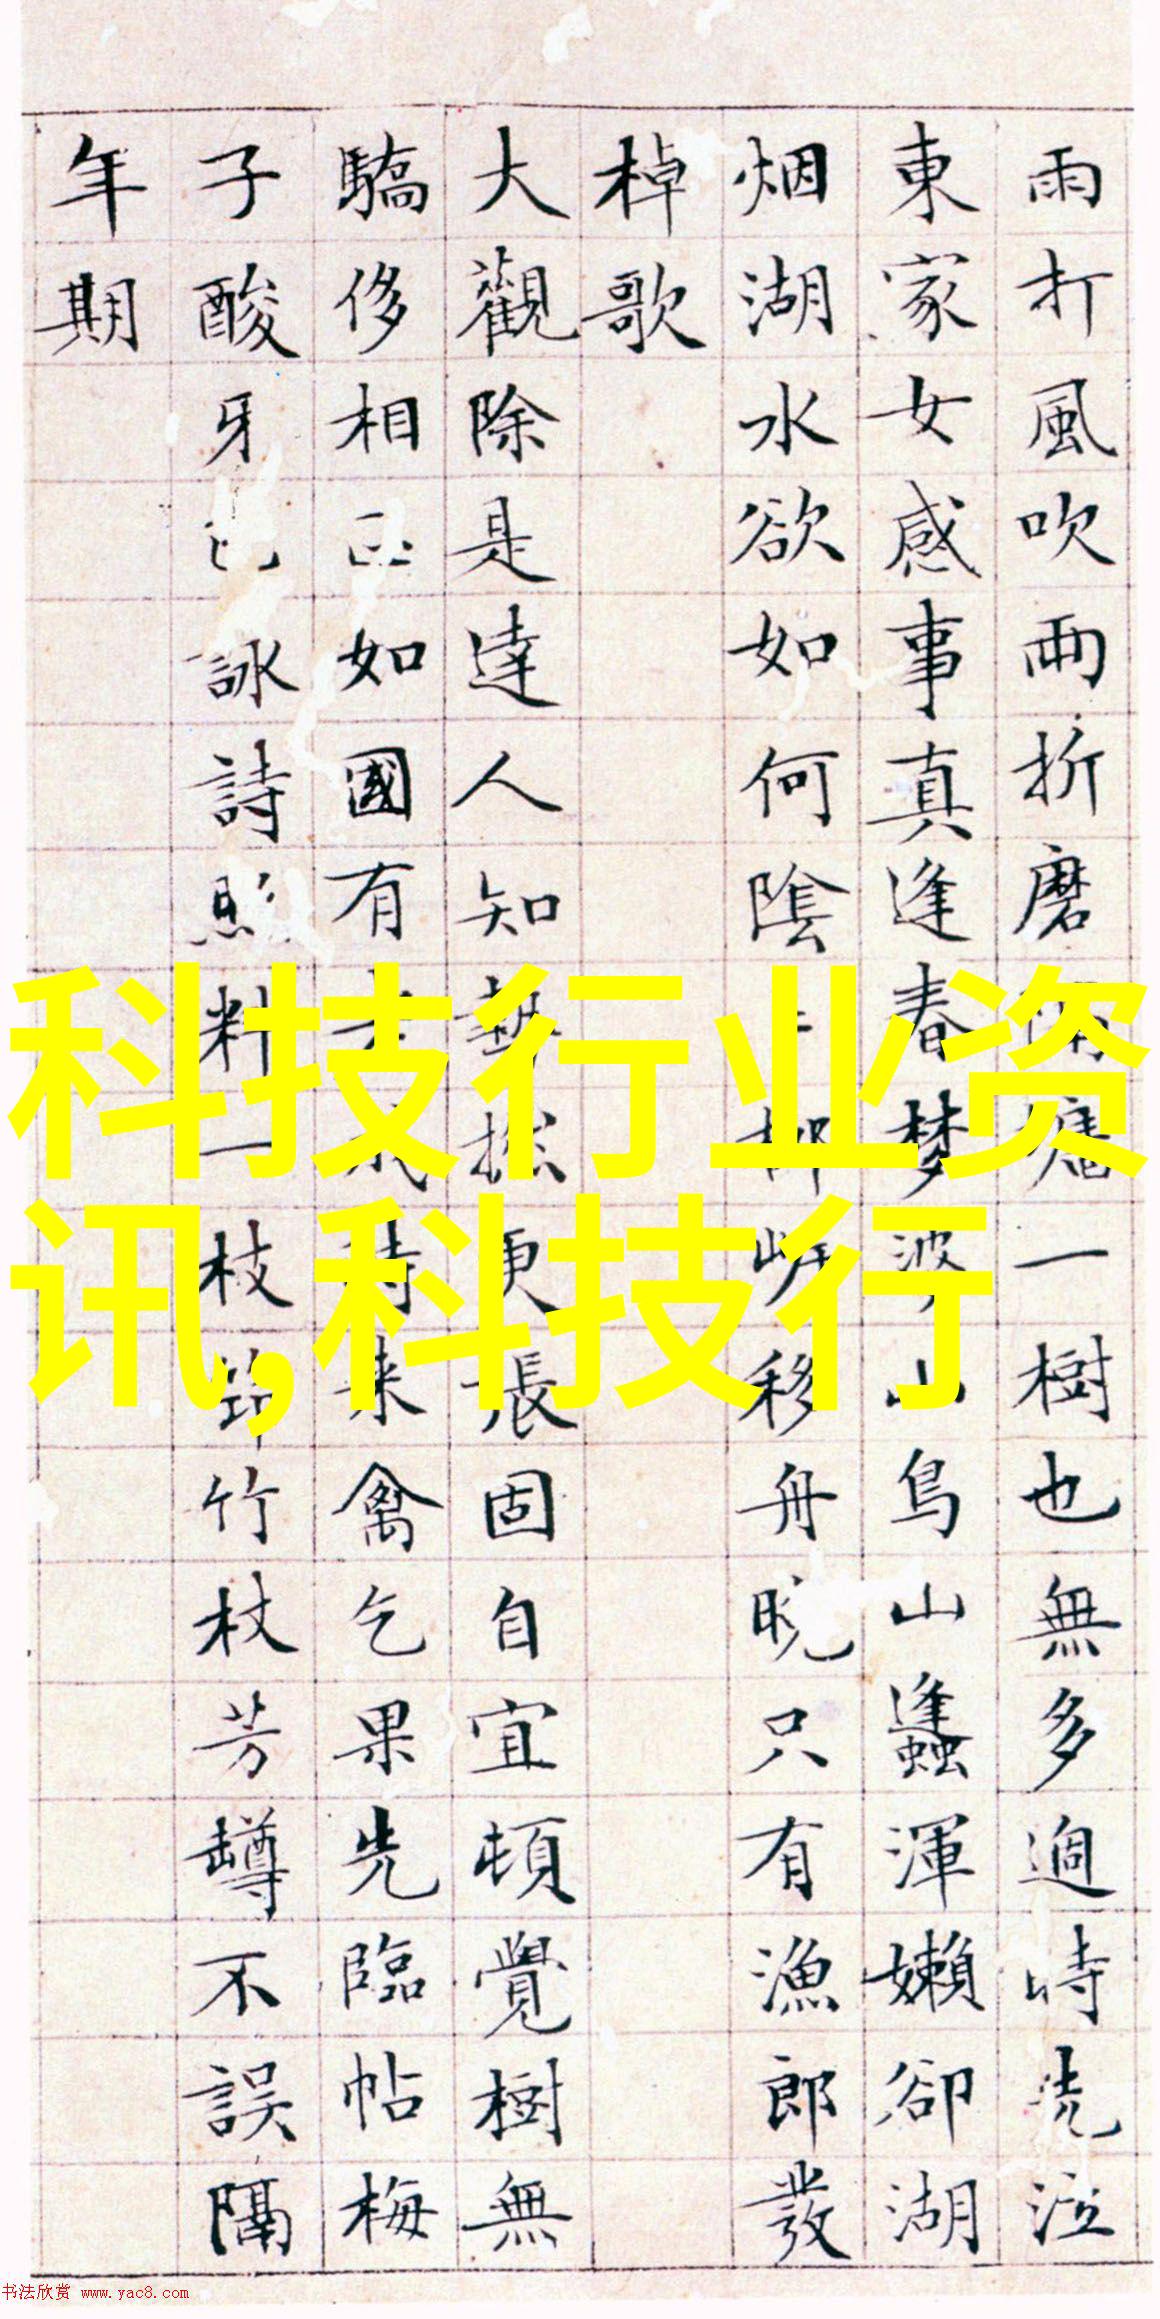 雨打風吹雨折磨一樹也無多過時
東家女感事真逢春夢婆山鳥山蠭渾嬾卻湖
烟湖水欲如何陰柳岍移舟晚只有漁郎發
棹歌
大觀除是達人知藝更張固自宜頓覺樹無
驕侈相如國有詩来禽乞果先臨帖梅
子酸牙詠詩照料一枝筇竹杖芳罇不誤隔
年期
科技行业资
讯,科技行
书法欣赏 www.yac8.com